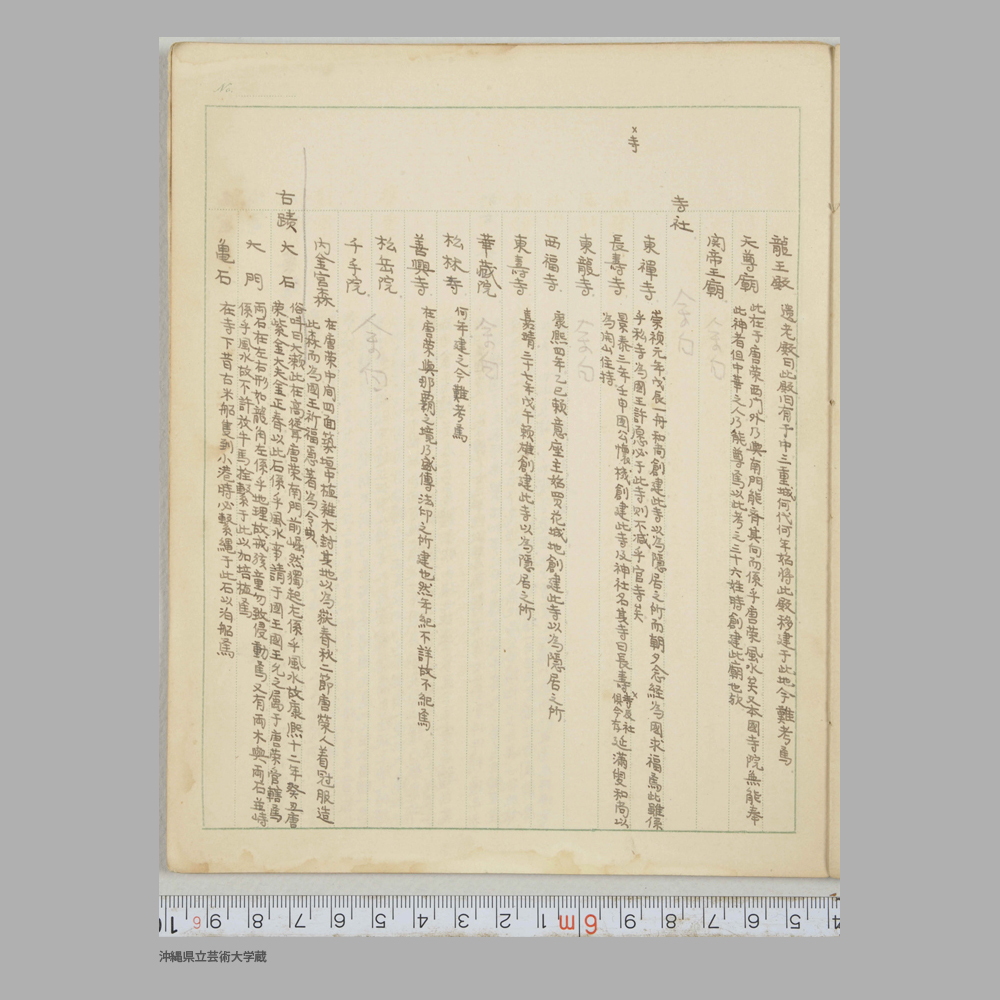 No.
龍王殿 遺老殿曰此殿旧有于中三重城何代何年始将此殿移建于此地今難考焉
天尊廟 此在于唐栄西門外乃與南門能斉其向而係乎唐栄風水矣又本國寺院無能奉
此神者但中華之人乃能尊焉以此考之三十六姓時創建此廟也欤
関帝王廟
寺社
東禅寺 崇禎元年戊辰一舟和尚創建此寺以為隠居之所而朝夕念経為國求福焉此雖係
乎私寺為國王許愿必于此寺則不減乎官寺矣
×寺
長寿寺 景泰三年壬申國公懐機創建此寺及神社名其寺曰長寿寺×寺及社俱今存 近満叟和尚以
為開山住持
東龍寺
西福寺 康熙四年乙巳頼意座主始買花城地創建此寺以為隠居之所
東壽寺 嘉靖三十七年戊午頼雄創建此寺以為隠居之所
華蔵院
松林寺 何年建之今難考焉
善興寺 在唐栄與那覇之境乃盛傳法印之所建也然年紀不詳故不紀焉
松岳院
千手院
内金宮森 在唐栄中間四面築垣中植雑木封其地以為嶽春秋二節唐榮人着冠服造
此森而為國王祈福愿著為今典
古蹟
大石 俗呼曰大瀬此在高聳乎唐栄南門前崛然獨起尤係乎風水故康熙十二年癸丑唐
栄紫金大夫金正春以此石係乎風水事請于國王國王允之属于唐栄管轄焉
大門 両石在左右形如龍角左係乎地理故戒残童勿致侵動焉又有両木與両石並峙
係乎風水故不許放牛馬拴繋于此以加培植焉
亀石 在寺下昔古米船隻到小港時必繋縄于此石以泊船焉
10 6 9 8 7 6 5 4 3 2 1 6m 9 8 7 6 5 4
沖縄県立芸術大学蔵